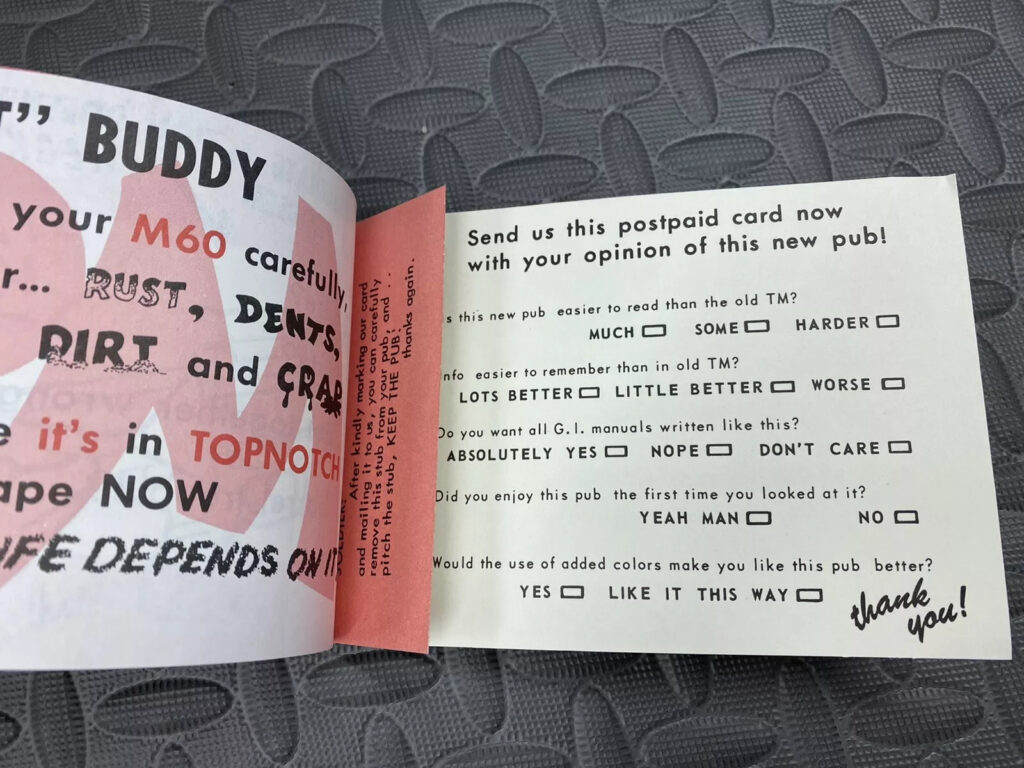 T" BUDDY
your M60 carefully,
r... RUST, DENTS,
DIRT and CRAP
e it's in TOPNOTCH
ape NOW
IFE DEPENDS ON IT
After kindly marking our card
and mailing it to us, you can carefully
remove this stub from your pub, and . .
pitch the stub, KEEP THE PUB!
thanks again.
Send us this postpaid card now
with your opinion of this new pub!
s this new pub easier to read than the old TM?
MUCH SOME HARDER
nfo easier to remember than in old TM?
LOTS BETTER LITTLE BETTER WORSE
Do you want all G.I. manuals written like this?
ABSOLUTELY YES NOPE DON'T CARE
Did you enjoy this pub the first time you looked at it?
YEAH MAN NO
Would the use of added colors make you like this pub better?
YES LIKE IT THIS WAY
thank
you!